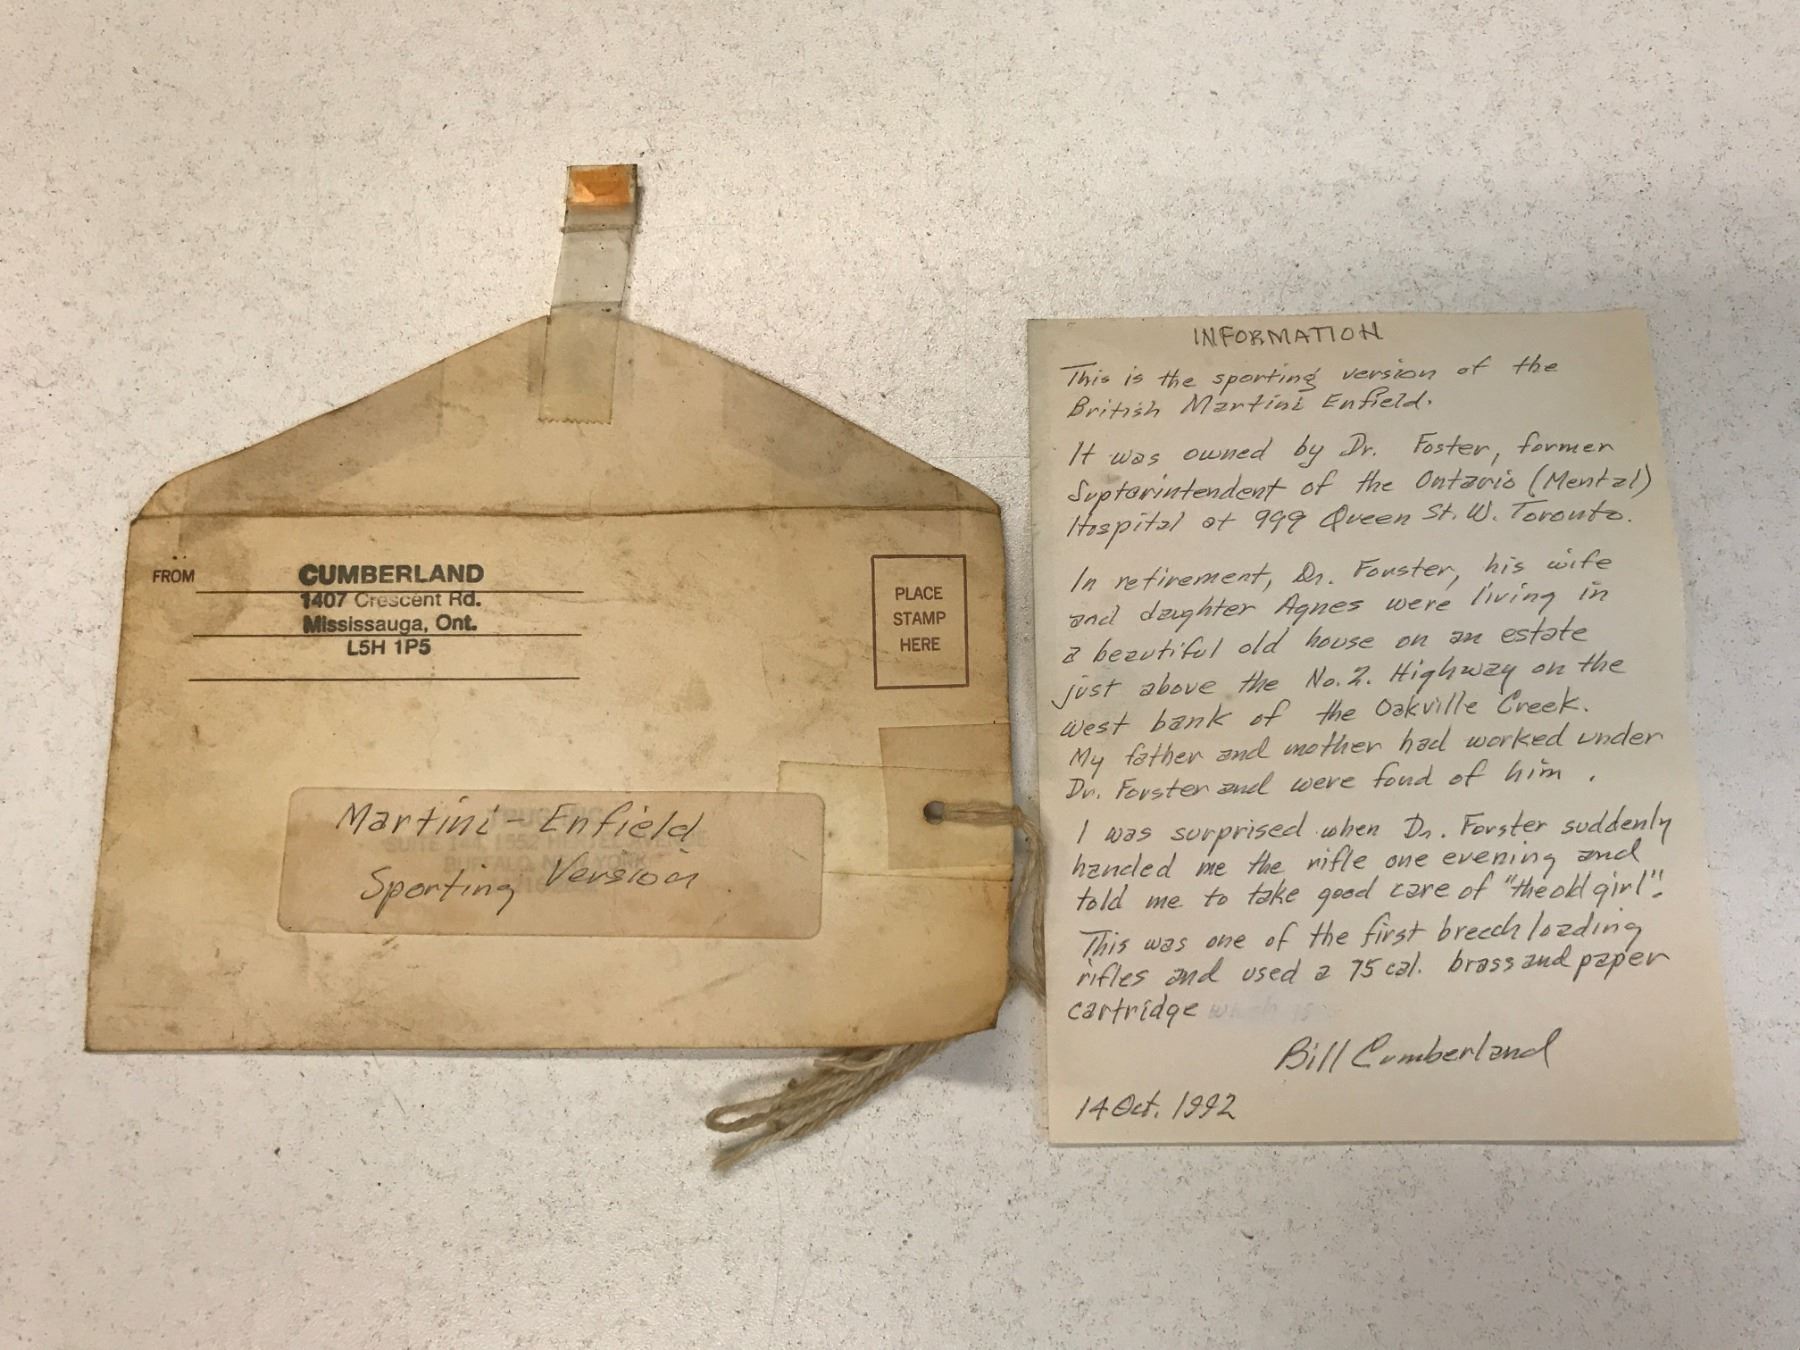 FROM
CUMBERLAND
1407 Crescent Rd.
Mississauga, Ont.
L5H 1P5
PLACE
STAMP
HERE
Martini-Enfield
Sporting Version
INFORMATION
This is the sporting version of the
British Martini Enfield.
It was owned by Dr. Foster, former
Suptarintendent of the Ontario (Mental)
Hospital at 999 Queen St. W. Toronto.
In retirement, Dr. Forster, his wife
and daughter Agnes were living in
a beautiful old house on an estate
just above the No. 2. Highway on the
west bank of the Oakville Creek.
My father and mother had worked under
Dr. Forster and were fond of him.
I was surprised when Dr. Forster suddenly
handed me the rifle one evening and
told me to take good care of "the old girl".
This was one of the first breech loading
rifles and used a 75 cal. brass and paper
cartridge
Bill Cumberland
14 Oct. 1992